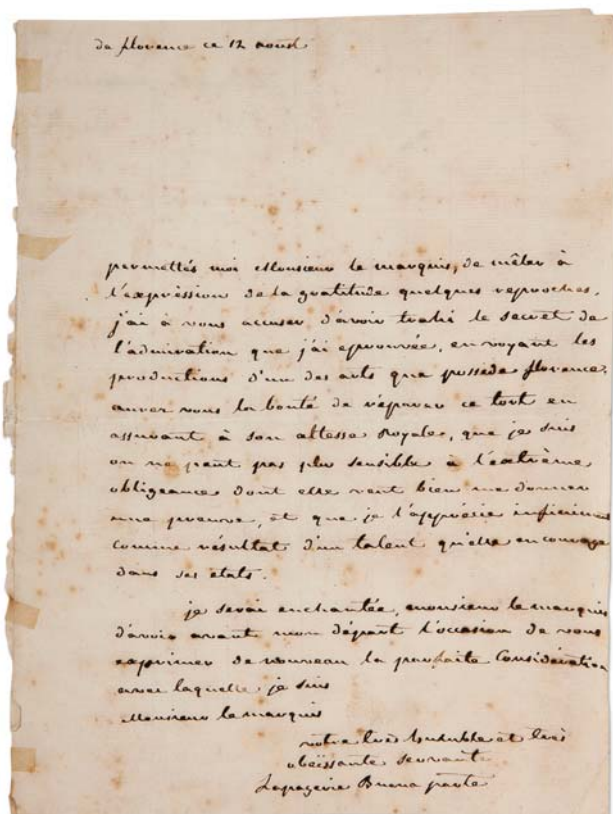 de florence ce 12 aoust
permettés moi Monsieur le marquis, de mêler à
l'expréssion de la gratitude quelques reproches,
j'ai à vous accuser d'avoir trahi le secret de
l'admiration que j'ai eprouvée, en voyant les
productions d'un des arts que possede florence.
aurez vous la bonté de réparer ce tort en
assurant à son altesse Royale, que je suis
on ne peut pas plus sensible à l'extrême
obligeance dont elle veut bien me donner
une preuve, et que je l'apprécie infiniment
comme résultat d'un talent qu'elle encourage
dans ses etats.
je serai enchantée, monsieur le marquis
d'avoir avant mon départ l'occasion de vous
exprimer de nouveau la parfaite Considération
avec laquelle je suis
Monsieur le marquis
votre très humble et très
obeissante servante
Lapagerie Buonaparte